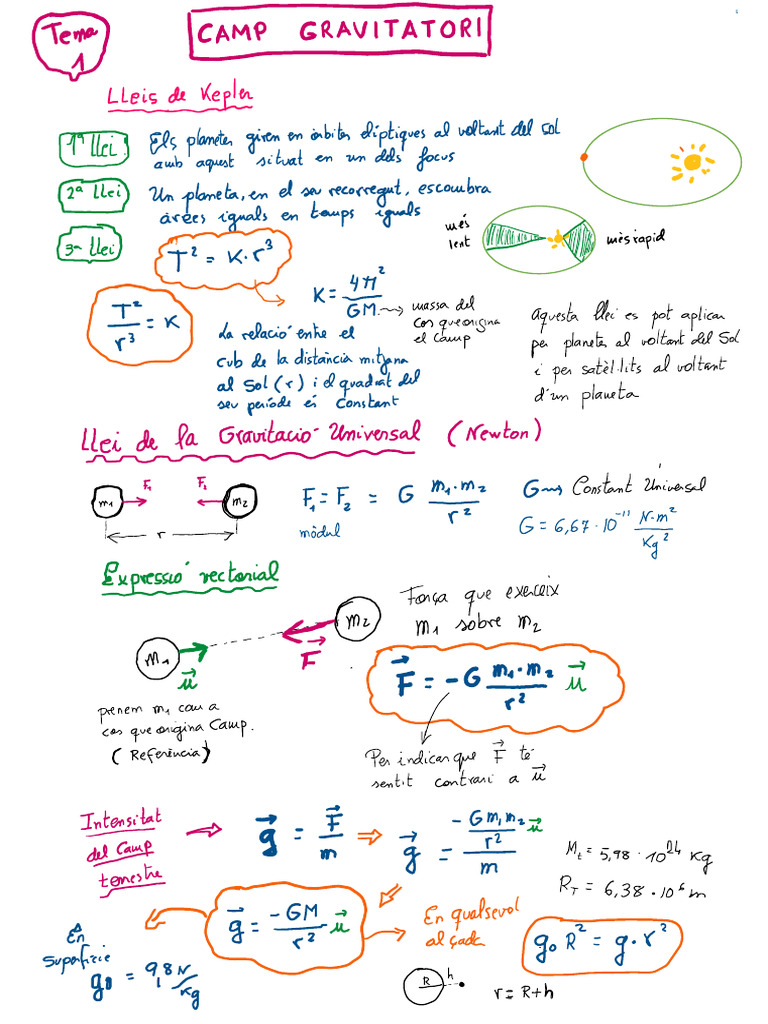 Tema 1
CAMP GRAVITATORI
Lleis de Kepler
1ª Llei: Els planetes giren en òrbites el·líptiques al voltant del Sol
amb aquest situat en un dels focus
2ª Llei Un planeta, en el seu recorregut, escombra
àrees iguals en temps iguals
més lent
més ràpid
3ª Llei
T² = K·r³
T²/r³ = K
K = 4π²/GM
massa del
cos que origina
el camp
La relació entre el
cub de la distància mitjana
al Sol (r) i el quadrat del
seu període és constant
Aquesta llei es pot aplicar
per planetes al voltant del Sol
i per satèl·lits al voltant
d'un planeta
Llei de la Gravitació Universal (Newton)
m₁ F₁ F₂ m₂
r
F₁ = F₂ = G m₁·m₂/r²
mòdul
G → Constant Universal
G = 6,67·10⁻¹¹ N·m²/Kg²
Expressió vectorial
m₁ u⃗ F⃗ m₂
prenem m₁ com a
cos que origina Camp.
(Referència)
Força que exerceix
m₁ sobre m₂
F⃗ = -G m₁·m₂/r² u⃗
Per indicar que F⃗ té
sentit contrari a u⃗
Intensitat
del Camp
terrestre
⇒ g⃗ = F⃗/m ⇒ g⃗ = (-G m₁m₂/r² u⃗)/m
M_t = 5,98·10²⁴ Kg
R_T = 6,38·10⁶ m
g⃗ = -GM/r² u⃗
En
superfície
g₀ = 9,8 N/Kg
En qualsevol
alçada
g₀R² = g·r²
R h
r = R+h